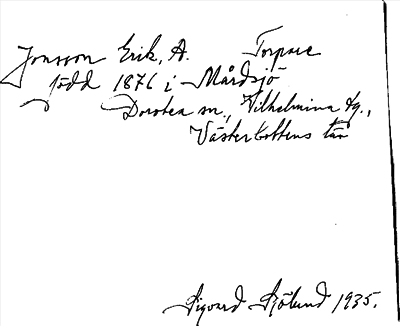 Jonsson Erik, A. Torpare
född 1876 i Mårdsjö
Dorotea sn., Vilhelmina tg.,
Västerbottens län
Sigvard Sjölund 1935.